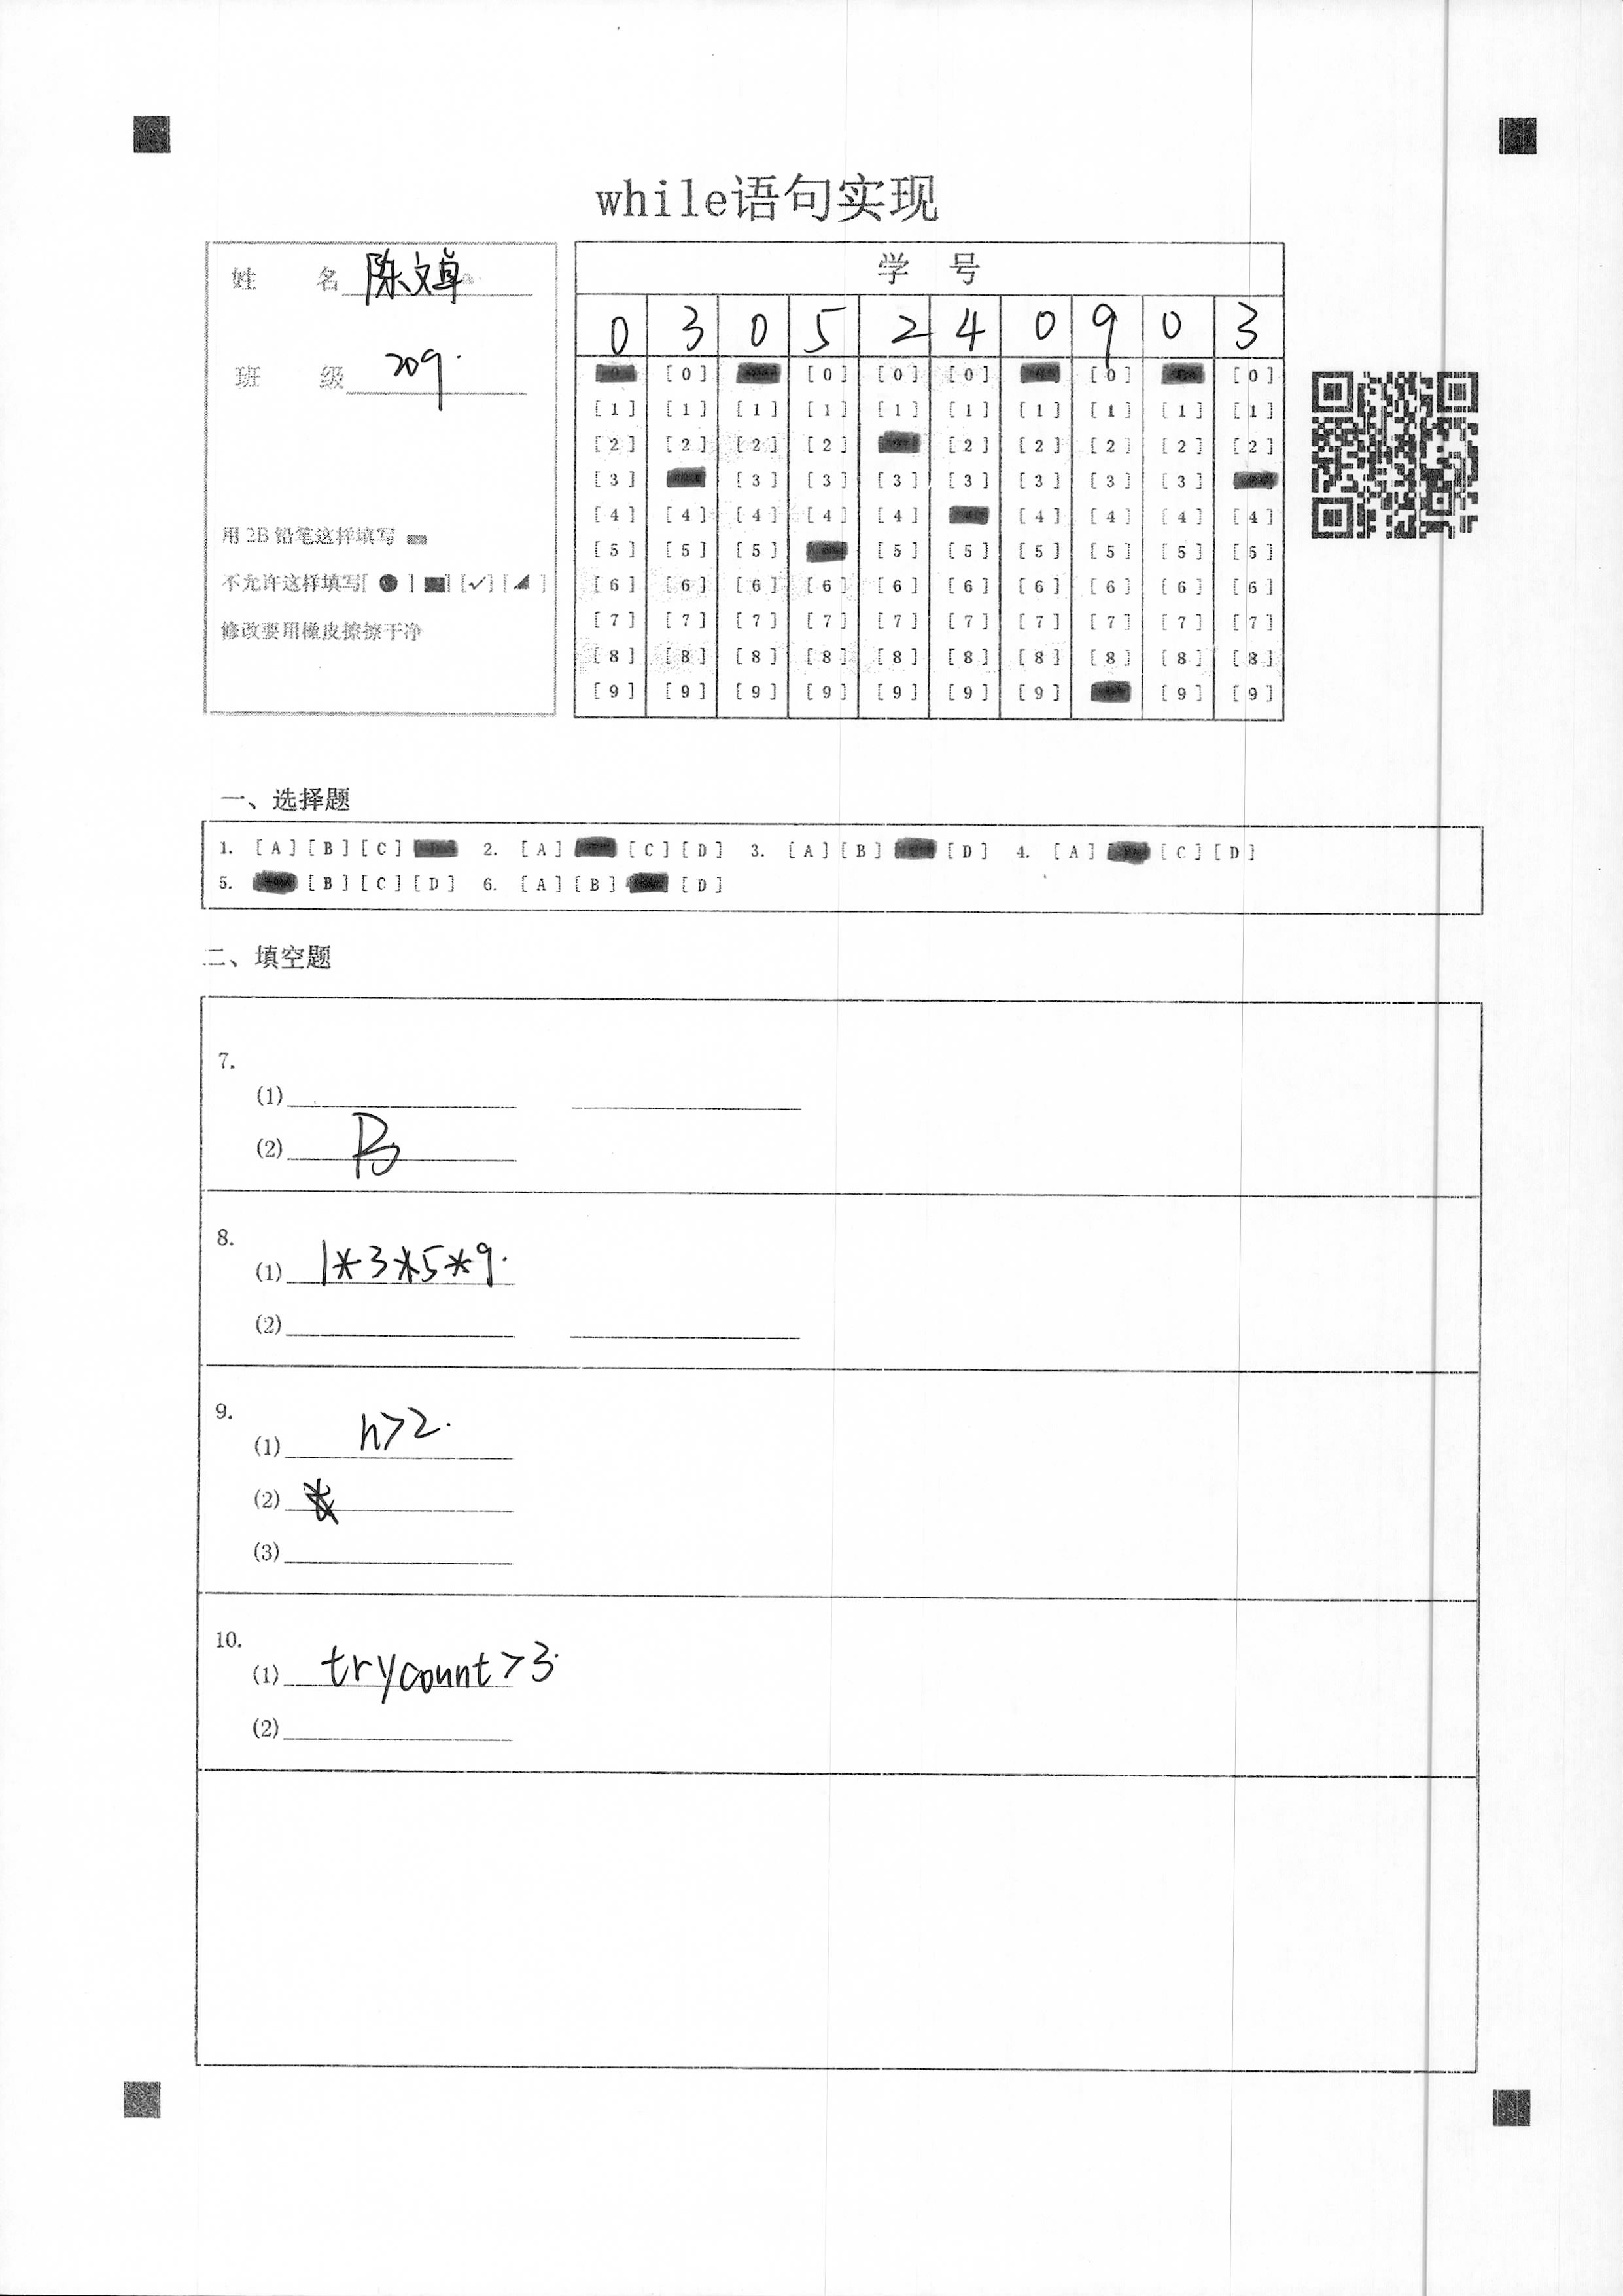 while语句实现
姓 名 陈文卓
班 级 209.
用 2B 铅笔这样填写
不允许这样填写[ ● ] [■] [✓] [◢ ]
修改要用橡皮擦擦干净
学 号
0 3 0 5 2 4 0 9 0 3
[0] [0] [0] [0] [0] [0]
[1] [1] [1] [1] [1] [1] [1] [1] [1] [1]
[2] [2] [2] [2] [2] [2] [2] [2] [2]
[3] [3] [3] [3] [3] [3] [3] [3]
[4] [4] [4] [4] [4] [4] [4] [4] [4]
[5] [5] [5] [5] [5] [5] [5] [5] [5]
[6] [6] [6] [6] [6] [6] [6] [6] [6] [6]
[7] [7] [7] [7] [7] [7] [7] [7] [7] [7]
[8] [8] [8] [8] [8] [8] [8] [8] [8] [8]
[9] [9] [9] [9] [9] [9] [9] [9] [9]
一、选择题
1. [A] [B] [C] 2. [A] [C] [D] 3. [A] [B] [D] 4. [A] [C] [D]
5. [B] [C] [D] 6. [A] [B] [D]
二、填空题
7.
(1)
(2)
8.
(1) 1*3*5*9.
(2)
9.
(1) n>2.
(2)
(3)
10.
(1) trycount>3.
(2)